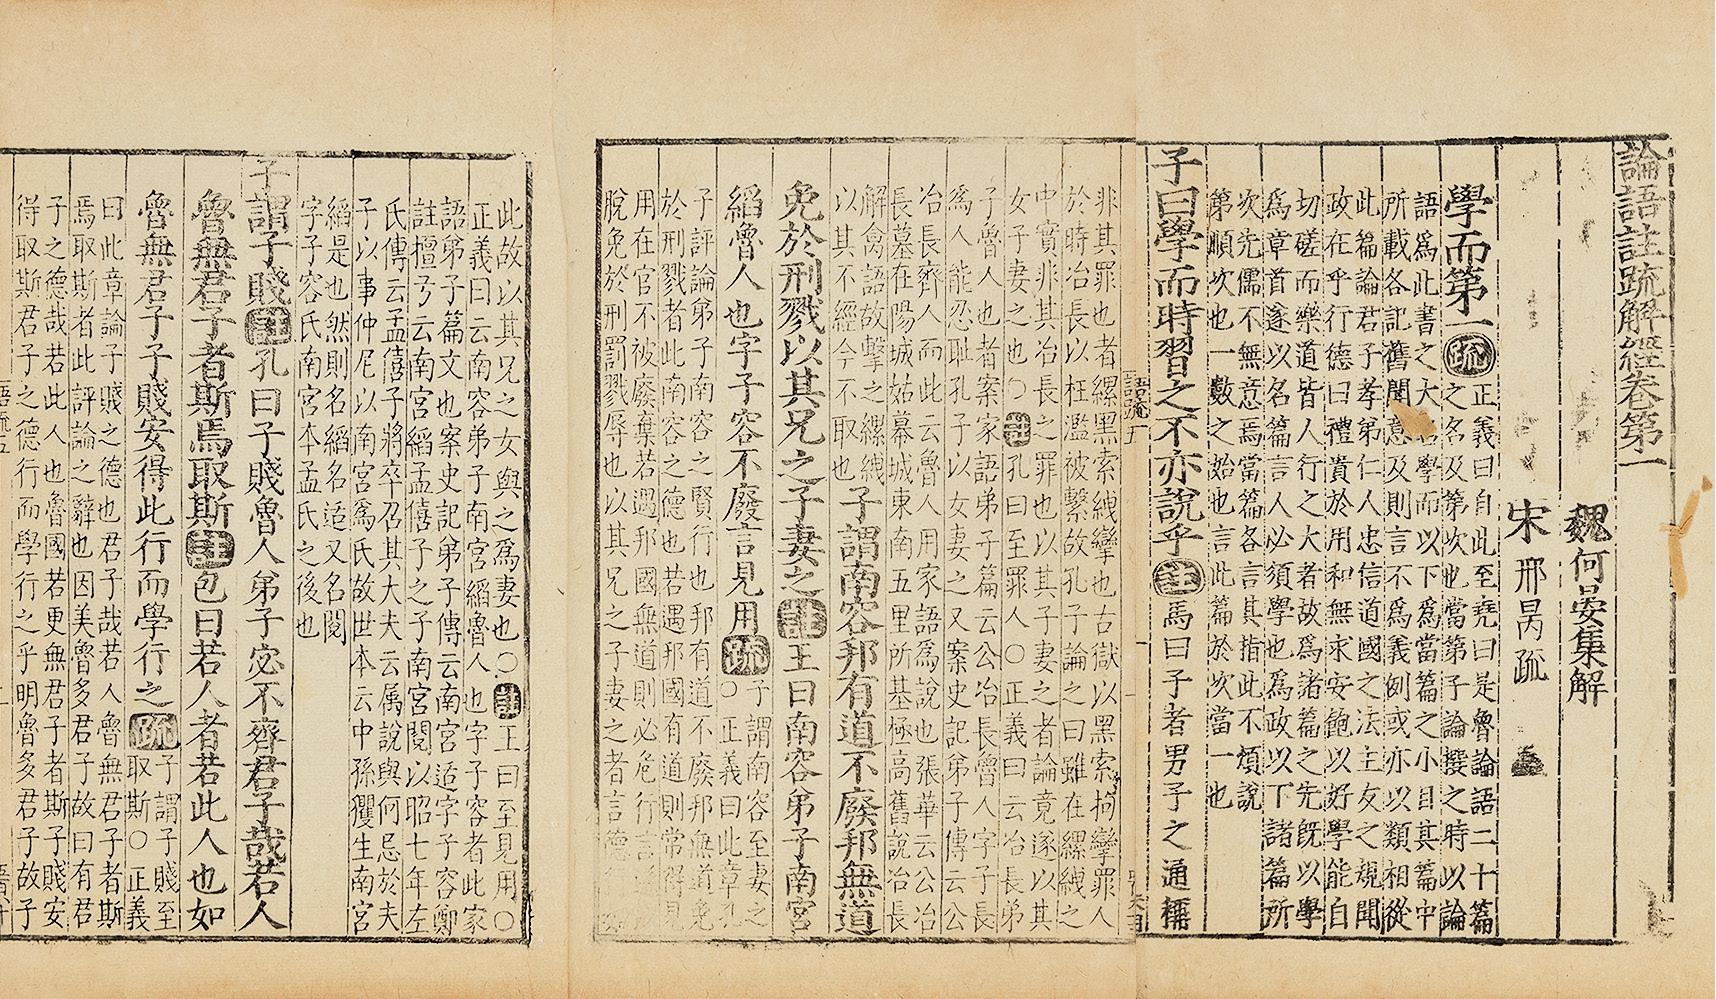 論語註疏解經卷第一
魏何晏集解
宋邢昺疏
學而第一疏正義曰自此至堯曰是魯論語二十篇
之名及第次也當第子論撰之時以論
語爲此書之大名學而以下爲當篇之小目其篇中
所載各記舊聞意及則言不爲義例或亦以類相從
此篇論君子孝弟仁人忠信道國之法主友之規聞
政在乎行德曰禮貴於用和無求安飽以好學能自
切磋而樂道皆人行之大者故爲諸篇之先旣以學
爲章首遂以名篇言人必須學也爲政以下諸篇所
次先儒不無意焉當篇各言其指此不煩說
第順次也一數之始也言此篇於次當一也
子曰學而時習之不亦說乎註馬曰子者男子之通稱
語疏五
非其罪也者縲黑索紲攣也古獄以黑索拘攣罪人
於時冶長以枉濫被繫故孔子論之曰雖在縲紲之
中實非其冶長之罪也以其子妻之者論竟遂以其
女子妻之也○註孔曰至罪人○正義曰云冶長弟
子魯人也者案家語弟子篇云公冶長魯人字子長
爲人能忍恥孔子以女妻之又案史記弟子傳云公
冶長齊人而此云魯人用家語爲說也張華云公冶
長墓在陽城姑幕城東南五里所基極高舊說冶長
解禽語故繫之縲紲
以其不經今不取也
子謂南容邦有道不廢邦無道
免於刑戮以其兄之子妻之註王曰南容弟子南宮
縚魯人也字子容不廢言見用疏子謂南容至妻之
○正義曰此章孔
子評論弟子南容之賢行也邦有道不廢邦無道免
於刑戮者此南容之德也若遇邦國有道則常得見
用在官不被廢棄若遇邦國無道則必危行言
脫免於刑罰戮辱也以其兄之子妻之者言德
此故以其兄之女與之爲妻也○註王曰至見用○
正義曰云南容弟子南宮縚魯人也字子容者此家
語弟子篇文也案史記弟子傳云南宮适字子容鄭
註檀弓云南宮縚孟僖子之子南宮閱以昭七年左
氏傳云孟僖子將卒召其大夫云屬說與何忌於夫
子以事仲尼以南宮爲氏故世本云中孫玃生南宮
縚是也然則名縚名适又名閱
字子容氏南宮本孟氏之後也
子謂子賤註孔曰子賤魯人弟子宓不齊君子哉若人
魯無君子者斯焉取斯註包曰若人者若此人也如
魯無君子子賤安得此行而學行之疏子謂子賤至
取斯○正義
曰此章論子賤之德也君子哉若人魯無君子者斯
焉取斯者此評論之辭也因美魯多君子故曰有君
子之德哉若此人也魯國若更無君子者斯子賤安
得取斯君子之德行而學行之乎明魯多君子故子
語疏五